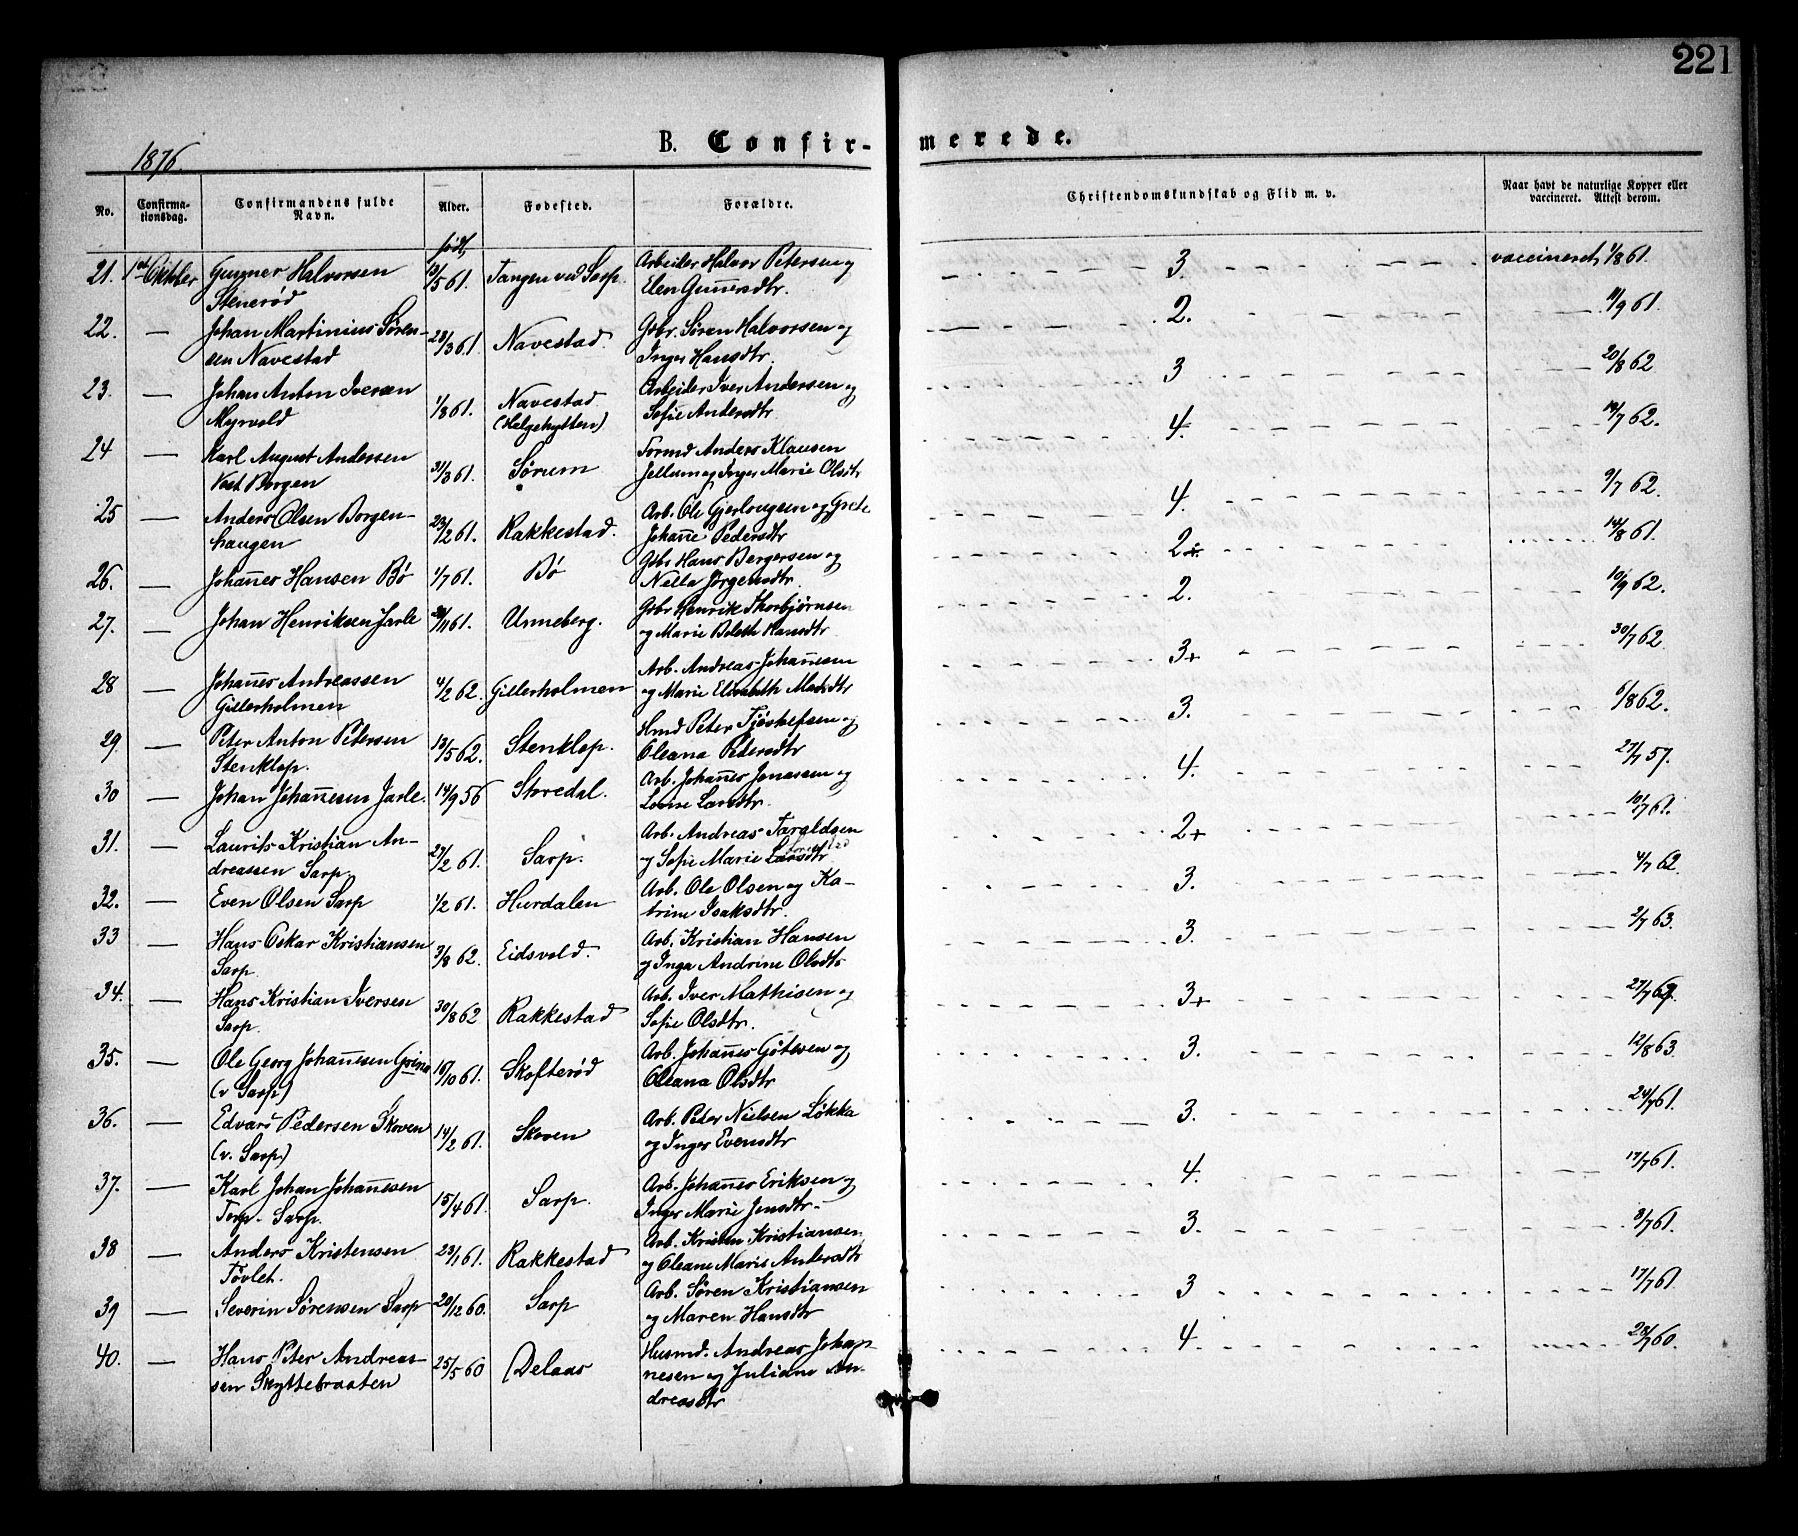 221
1876.
B. Confir- merede.
No. Confirma-tionsdag. Confirmandens fulde Navn. Alder. Fødested. Forældre. Christendomskundskab og Flid m. v. Naar havt de naturlige Kopper eller vaccineret. Attest derom.
født
21. 1st Oktober Gunner Halvorsen 13/5 61. Tangen ved Sarp. Arbeider Halvor Petersen og 3. vaccineret 1/8 61.
Stenerød Elen Gunersdtr.
22. — Johan Martinius Søren- 28/3 61. Navestad. Gbr. Søren Halvorsen og 2. 11/9 61.
sen Navestad Inger Hansdtr.
23. — Johan Anton Iversen 1/8 61. Navestad Arbeider Iver Andersen og 3 20/8 62
Myrvold (Helgehytten) Sofie Andersdtr.
24 — Karl August Andersen 31/3 61. Sørum Formd Anders Klausen 4. 19/7 62.
Vest Borgen Jellum og Inger Marie Olsdtr
25 — Anders Olsen Borgen- 23/2 61. Rakkestad. Arb. Ole Gjerlougsen og Grete 4. 9/7 62.
haugen Johanne Pedersdtr
26. — Johannes Hansen Bø 1/7 61. Bø Gbr Hans Bergersen og 2 14/8 61.
Nella Jørgensdtr.
27. — Johan Henriksen Jarle /11 61. Unneberg. Gbr Henrik Thorbjørnsen 2. 10/9 62.
og Marie Beleth Hansdtr
28 — Johannes Andreassen 4/2 62. Gillerholmen Arb. Andreas Johannesen 3+ 30/7 62.
Gillerholmen og Marie Elisabeth Madsdtr
29. — Peter Anton Petersen 13/5 62. Stenklep. Hmd Peter Tjøstelfsen og 3. 6/8 62.
Stenklep. Oleana Petersdtr
30 — Johan Johannesen Jarle. 14/9 56 Storedal. Arb. Johannes Jonassen og 4. 27/7 57.
Larsdtr.
31. — Laurits Kristian An- 27/2 61. Sarp. Arb. Andreas Taraldsen 2+ 10/7 61.
dreassen Sarp. og Sofie Marie Larsdtr
32. — Even Olsen Sarp 1/2 61. Hurdalen Arb. Ole Olsen og Ka- 3. 4/7 62
trine Isaksdtr.
33 — Hans Oskar Kristiansen 3/8 62. Eidsvold. Arb. Kristian Hansen 3. 2/7 63.
Sarp. og Inga Andrine Olsdtr
34. — Hans Kristian Iversen 30/8 62 Rakkestad Arb. Iver Mathisen og 3+ 27/7 62.
Sarp. Sofie Olsdtr.
35. — Ole Georg Johannesen Grina 16/10 61. Skofterød Arb. Johannes Götesen og 3. 12/8 63.
(v Sarp) Oleana Olsdtr
36. — Edvard Pedersen Skoven 14/2 61. Skoven Arb. Peter Nielsen Løkka 3. 24/7 61.
(v. Sarp) og Inger Evensdtr
37. — Karl Johan Johannesen 15/4 61. Sarp. Arb. Johannes Eriksen og 4. 17/7 61.
Torp. Sarp. Inger Marie Jensdtr.
38 — Anders Kristensen 23/1 61. Rakkestad Arb. Kristen Kristiansen 3. 3/7 61.
Tøvlet. og Oleane Marie Andersdtr
39 — Severin Sørensen Sarp 20/12 60. Sarp Arb. Søren Kristiansen 3 17/7 61.
og Maren Hansdtr
40. — Hans Peter Andreas- 25/5 60 Delaas Husmd. Andreas Johan- 4. 28/7 60.
sen Skyttebraaten nesen og Juliane An-
dreasdtr